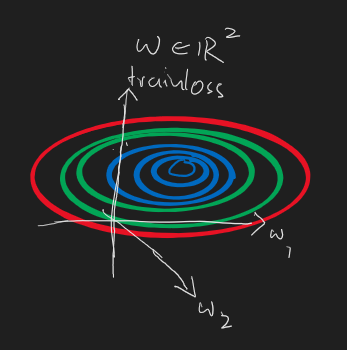 W ∈ ℝ²
trainloss
w₁
w₂